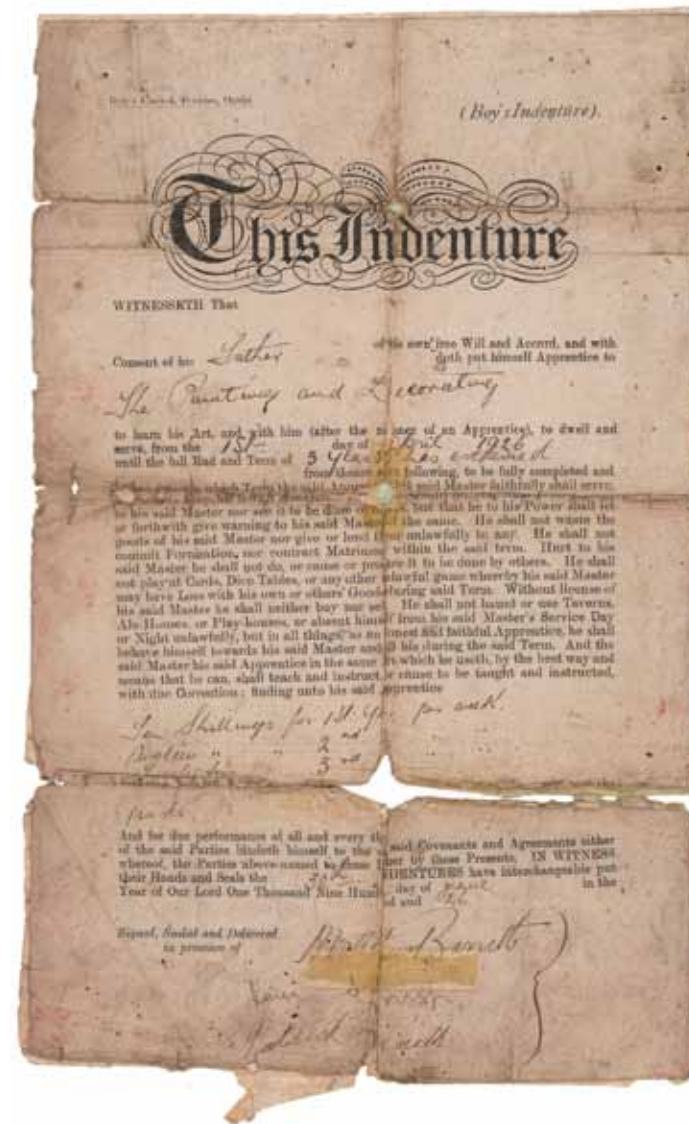 (Boy's Indenture).
This Indenture
WITNESSETH That
of his own free Will and Accord, and with
Consent of his Father doth put himself Apprentice to
The Painting and Decorating
to learn his Art, and with him (after the manner of an Apprentice), to dwell and
serve, from the 1st day of April 1926
until the full End and Term of 3 years
from thence next following, to be fully completed and
which Term the said Master faithfully shall serve,
to his said Master nor see it to be done but that he to his Power shall let
or forthwith give warning to his said Master of the same. He shall not waste the
goods of his said Master nor give or lend them unlawfully to any. He shall not
commit Fornication, nor contract Matrimony within the said term. Hurt to his
said Master he shall not do, or cause or procure it to be done by others. He shall
not play at Cards, Dice Tables, or any other unlawful game whereby his said Master
may have Loss with his own or others' Goods during said Term. Without license of
his said Master he shall neither buy nor sell. He shall not haunt or use Taverns,
Ale-Houses, or Play-houses, or absent himself from his said Master's Service Day
or Night unlawfully, but in all things, as an honest and faithful Apprentice, he shall
behave himself towards his said Master and all his during the said Term. And the
said Master his said Apprentice in the same Art which he useth, by the best way and
means that he can, shall teach and instruct, or cause to be taught and instructed,
with due Correction; finding unto his said Apprentice
Ten Shillings for 1st Year per week
2nd
3rd
And for due performance of all and every the said Covenants and Agreements either
of the said Parties bindeth himself to the other by these Presents. IN WITNESS
whereof, the Parties above-named to these INDENTURES have interchangeable put
their Hands and Seals the 30th day of April in the
Year of Our Lord One Thousand Nine Hundred and 26
Signed, Sealed and Delivered
in presence of